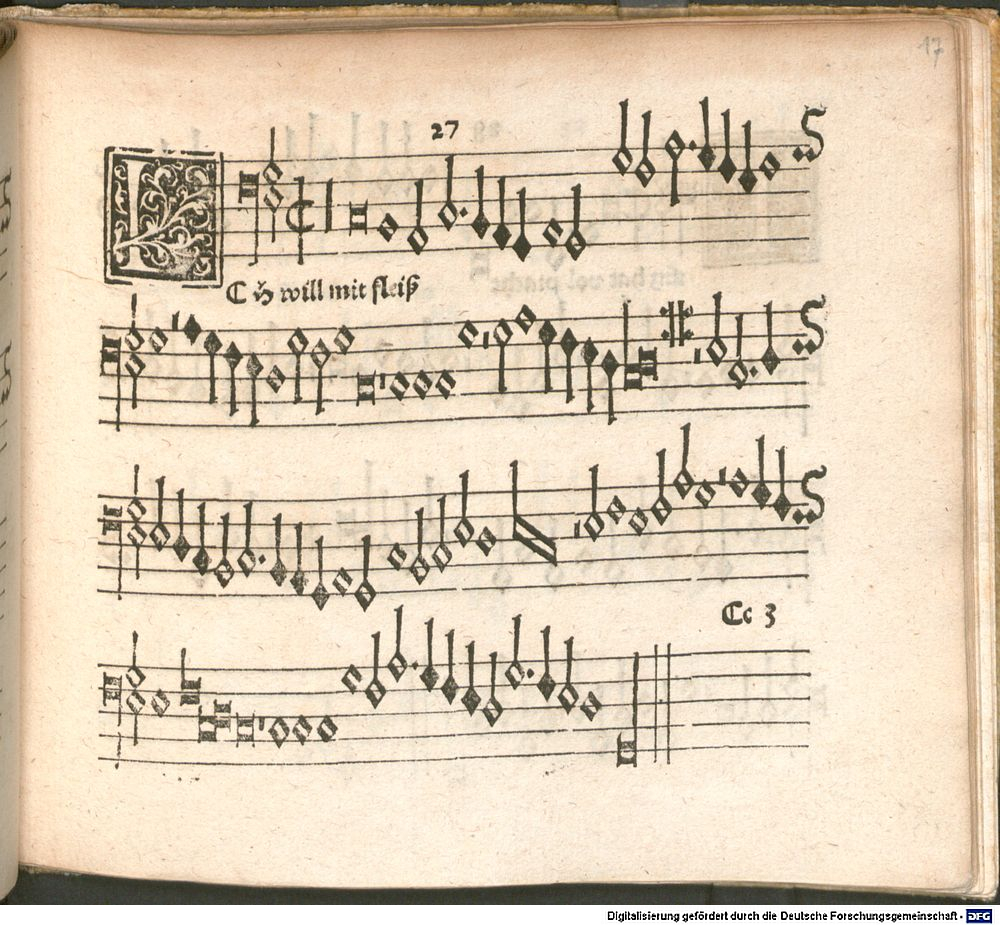 17
27
Ch will mit fleiß
Cc 3
Digitalisierung gefördert durch die Deutsche Forschungsgemeinschaft - DFG